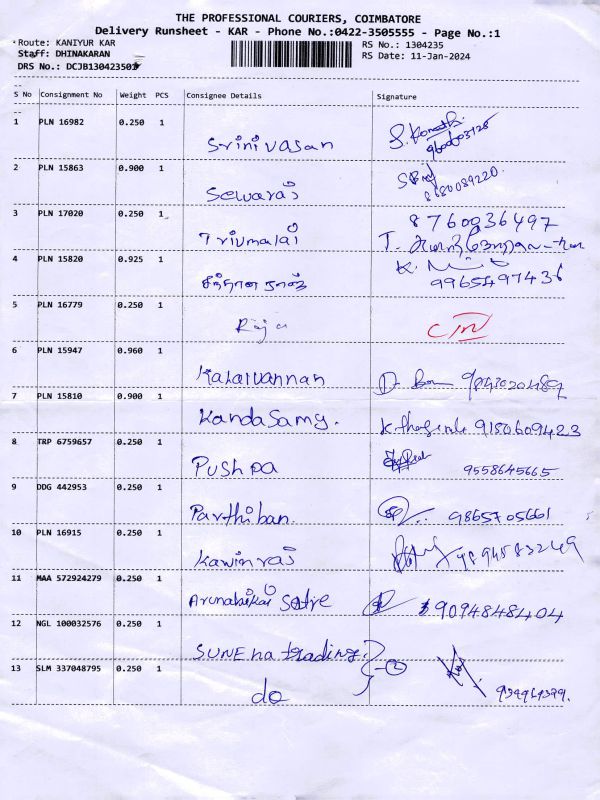 THE PROFESSIONAL COURIERS, COIMBATORE
Delivery Runsheet - KAR - Phone No.:0422-3505555 - Page No.:1
Route: KANIYUR KAR RS No.: 1304235
Staff: DHINAKARAN RS Date: 11-Jan-2024
DRS No.: DCJB130423501
S No Consignment No Weight PCS Consignee Details Signature
1 PLN 16982 0.250 1 Srinivasan
2 PLN 15863 0.900 1 Selvaraj 8680089220.
3 PLN 17020 0.250 1 Trirumalai 8760036497
4 PLN 15820 0.925 1 9965497436
5 PLN 16779 0.250 1 Raja
6 PLN 15947 0.960 1 Kalaivannan
7 PLN 15810 0.900 1 Kandasamy. 9150609423
8 TRP 6759657 0.250 1 Pushpa 9558645665
9 DDG 442953 0.250 1 Parthiban. 9865705661
10 PLN 16915 0.250 1 Kawinraj 9894583249
11 MAA 572924279 0.250 1 Arunabikai Store 9094848404
12 NGL 100032576 0.250 1 SUNEha trading. 2
13 SLM 337048795 0.250 1 do